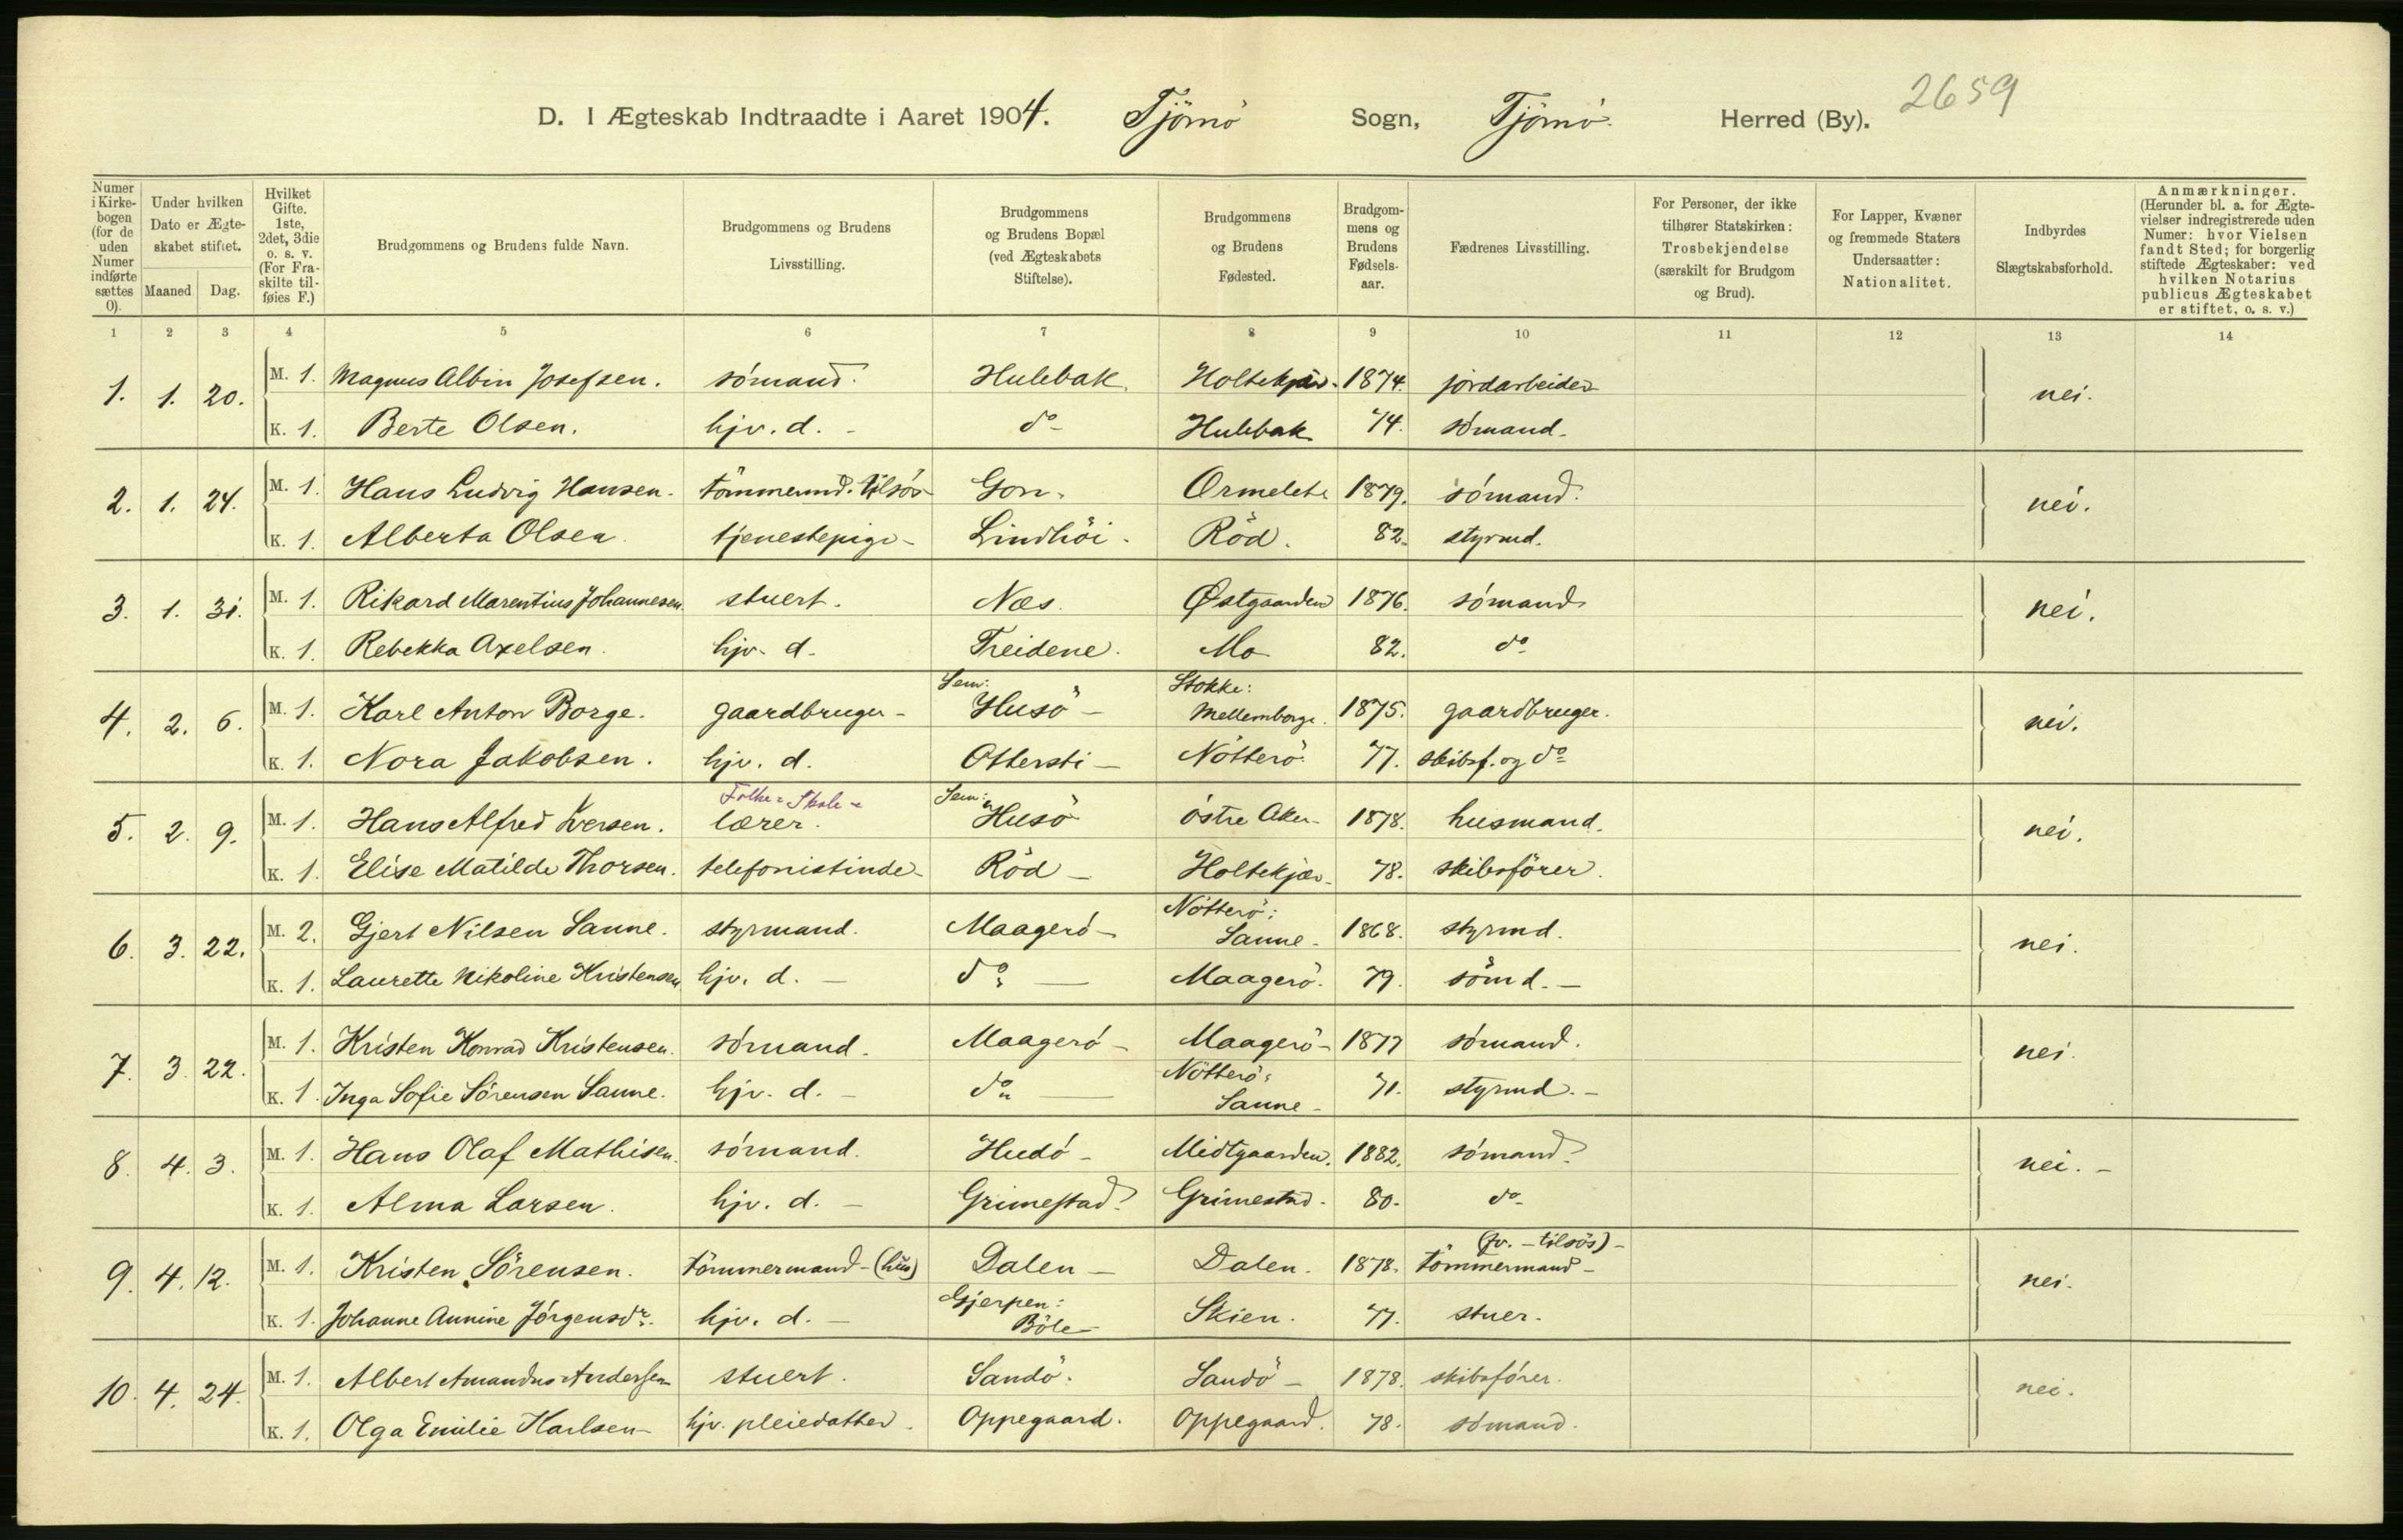 2659
D. I Ægteskab Indtraadte i Aaret 1904. Tjömö Sogn, Tjömö. Herred (By).
Numer i Kirkebogen (for de uden Numer indførte sættes 0).
Under hvilken Dato er Ægteskabet stiftet.
Maaned Dag.
Hvilket Gifte. 1ste, 2det, 3die o. s. v. (For Fraskilte tilføies F.)
Brudgommens og Brudens fulde Navn.
Brudgommens og Brudens Livsstilling.
Brudgommens og Brudens Bopæl (ved Ægteskabets Stiftelse).
Brudgommens og Brudens Fødested.
Brudgommens og Brudens Fødselsaar.
Fædrenes Livsstilling.
For Personer, der ikke tilhører Statskirken: Trosbekjendelse (særskilt for Brudgom og Brud).
For Lapper, Kvæner og fremmede Staters Undersaatter: Nationalitet.
Indbyrdes Slægtskabsforhold.
Anmærkninger. (Herunder bl. a. for Ægtevielser indregistrerede uden Numer: hvor Vielsen fandt Sted; for borgerlig stiftede Ægteskaber: ved hvilken Notarius publicus Ægteskabet er stiftet, o. s. v.)
1 2 3 4 5 6 7 8 9 10 11 12 13 14
1. 1. 20. M. 1. Magnus Albin Josefsen. sömand. Hulebak. Holtekjær. 1874. jordarbeider nei.
K. 1. Berte Olsen. hjv. d. - do Hulebak 74. sömand.
2. 1. 24. M. 1. Hans Ludvig Hansen. tömmermd. tilsös Gon. Ormelete 1879. sömand. nei.
K. 1. Alberta Olsen. tjenestepige - Lindhöi. Röd. 82. styrmd.
3. 1. 31. M. 1. Rikard Marentius Johannesen. stuert. Næs. Østgaarden 1876. sömand nei.
K. 1. Rebekka Axelsen. hjv. d. Treidene. Mo 82. do
4. 2. 6. M. 1. Karl Anton Borge. gaardbruger - Sem: Husö - Stokke: Mellemborge. 1875. gaardbruger. nei.
K. 1. Nora Jakobsen. hjv. d. Ottersti - Nötterö. 77. skibsf. og do
5. 2. 9. M. 1. Hans Alfred Iversen. Folke-Skole-lærer. Sem: Husö östre Aker - 1878. husmand. nei.
K. 1. Elise Matilde Thorsen. telefonistinde - Röd - Holtekjær - 78. skibsförer.
6. 3. 22. M. 2. Gjert Nilsen Sanne. styrmand. Maagerö - Nötterö: Sanne - 1868. styrmd. nei.
K. 1. Laurette Nikoline Kristensen hjv. d. - do - Maagerö. 79. sömd. -
7. 3. 22. M. 1. Kristen Konrad Kristensen. sömand. Maagerö - Maagerö - 1877 sömand. nei.
K. 1. Inga Sofie Sörensen Sanne. hjv. d. - do - Nötterö: Sanne - 71. styrmd. -
8. 4. 3. M. 1. Hans Olaf Mathisen. sömand. Hudö - Midtgaarden. 1882. sömand. nei. -
K. 1. Alma Larsen. hjv. d. - Grimestad. Grimestad. 80. do
9. 4. 12. M. 1. Kristen Sörensen. tömmermand - (hus) Dalen - Dalen. 1878. (fv. - tilsös) - tömmermand - nei.
K. 1. Johanne Annine Jörgensdr. hjv. d. - Gjerpen: Böle - Skien. 77. stuer.
10. 4. 24. M. 1. Albert Amandus Andersen stuert. Sandö. Sandö - 1878. skibsförer. nei.
K. 1. Olga Emilie Karlsen - hjv. pleiedatter. Oppegaard. Oppegaard. 78. sömand.